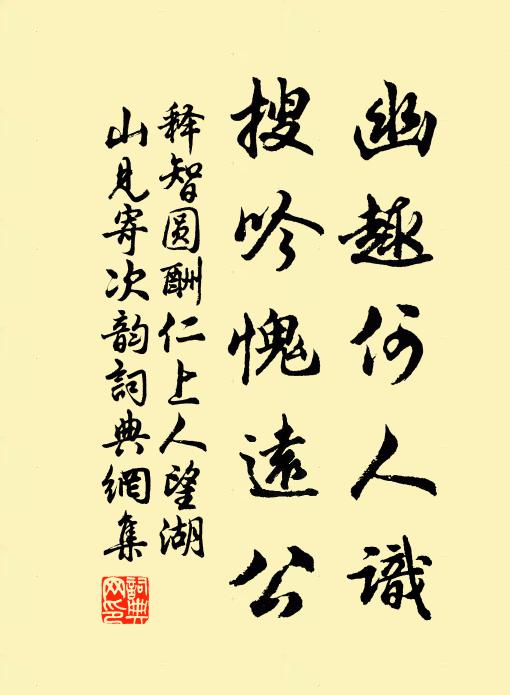 幽趣何人識
搜吟愧遠公
释智圆酬仁上人望湖
山見寄次韵詞典網集